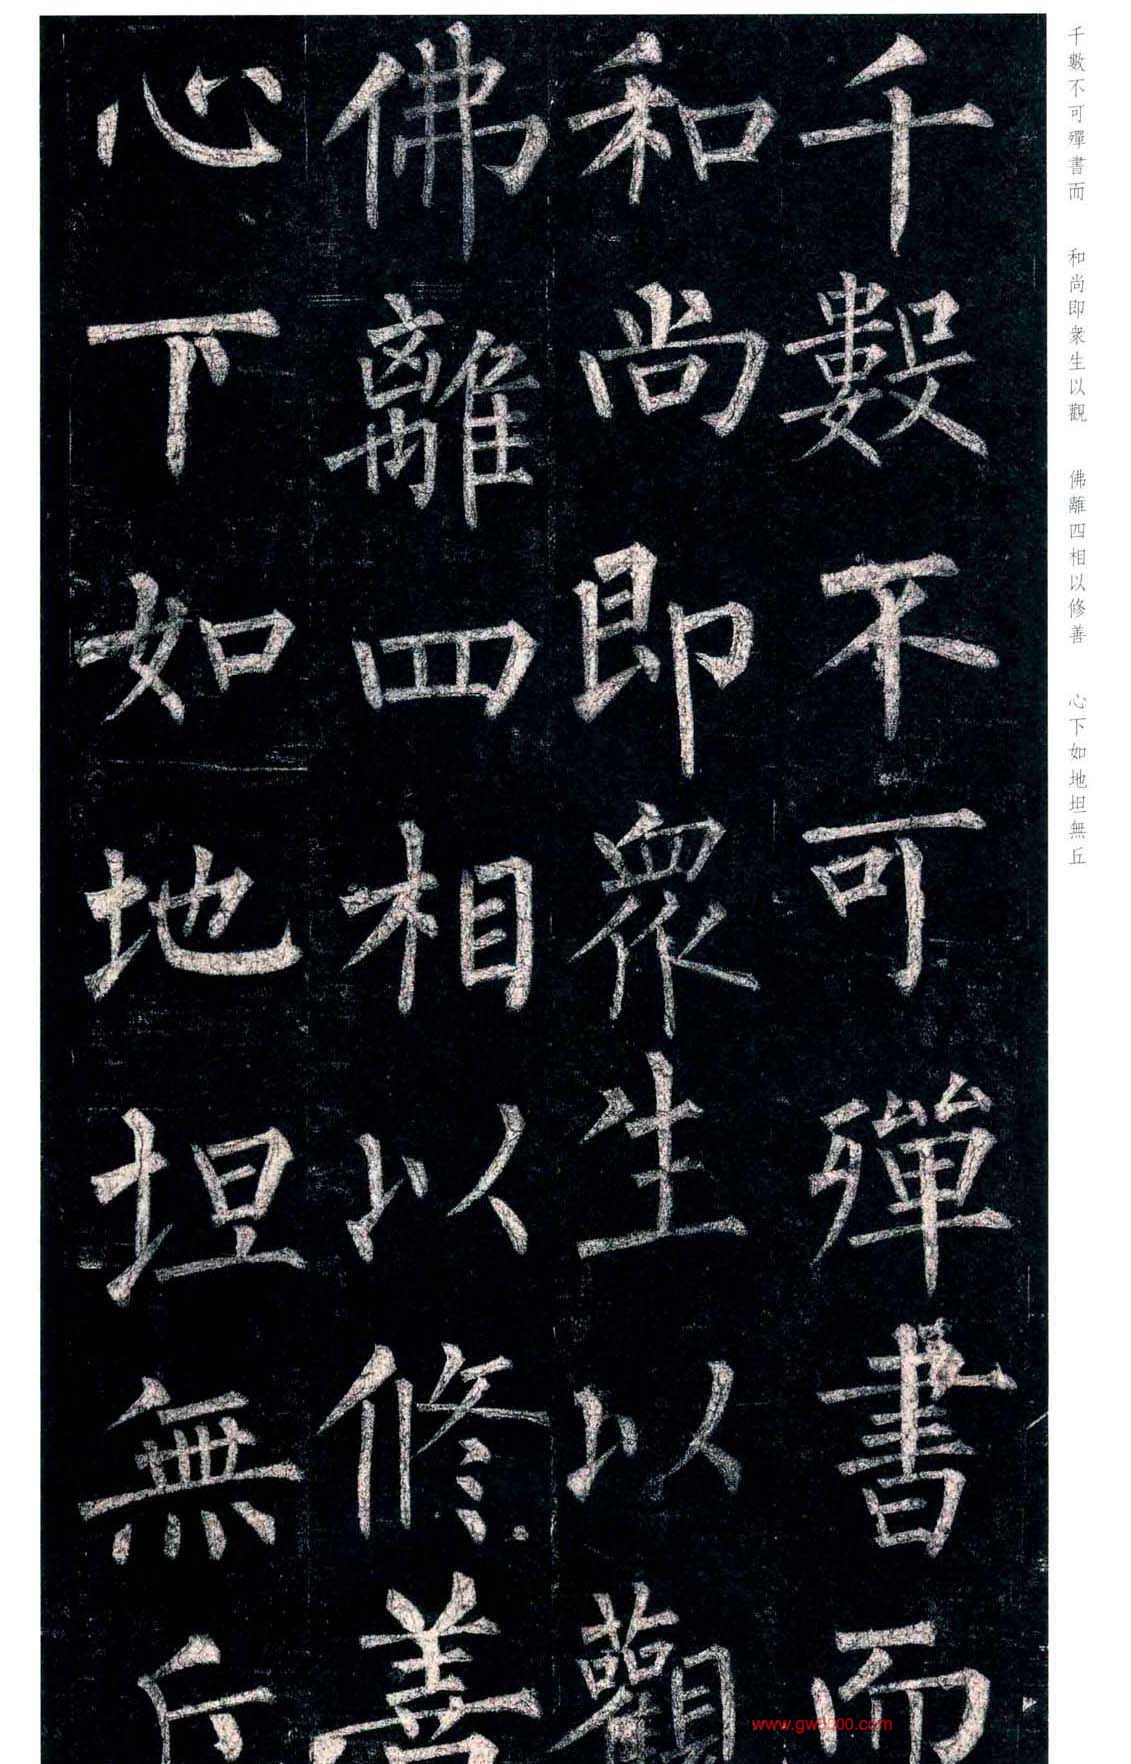 千數不可殫書而
和尚即眾生以觀
佛離四相以修善
心下如地坦無丘
千數不可殫書而　和尚即衆生以觀　佛離四相以修善　心下如地坦無丘
www.gwa000.com